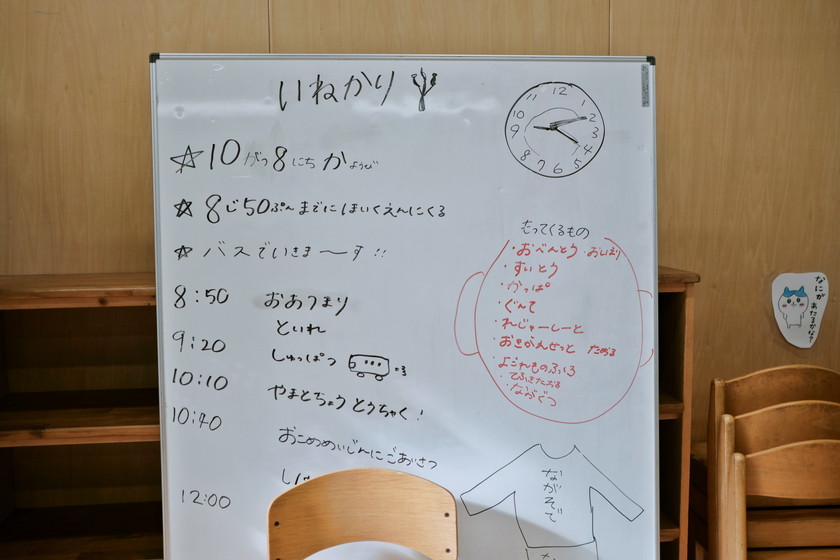 いねかり
☆10がつ8にちかようび
☆8じ50ぷんまでにほいくえんにくる
☆バスでいきま〜す!!
8:50 おあつまり
といれ
9:20 しゅっぱつ
10:10 やまとちょうとうちゃく!
10:40 おこめめいじんにごあいさつ
12:00
12
11
10
9
8
7
6
5
4
3
2
もってくるもの
・おべんとう ・おしぼり
・すいとう
・かっぱ
・ぐんて
・れじゃーしーと
・おきがえせっと
・よごれものぶくろ
・てふきたおる
・ながぐつ
ながそで
なにが
あたるかな?